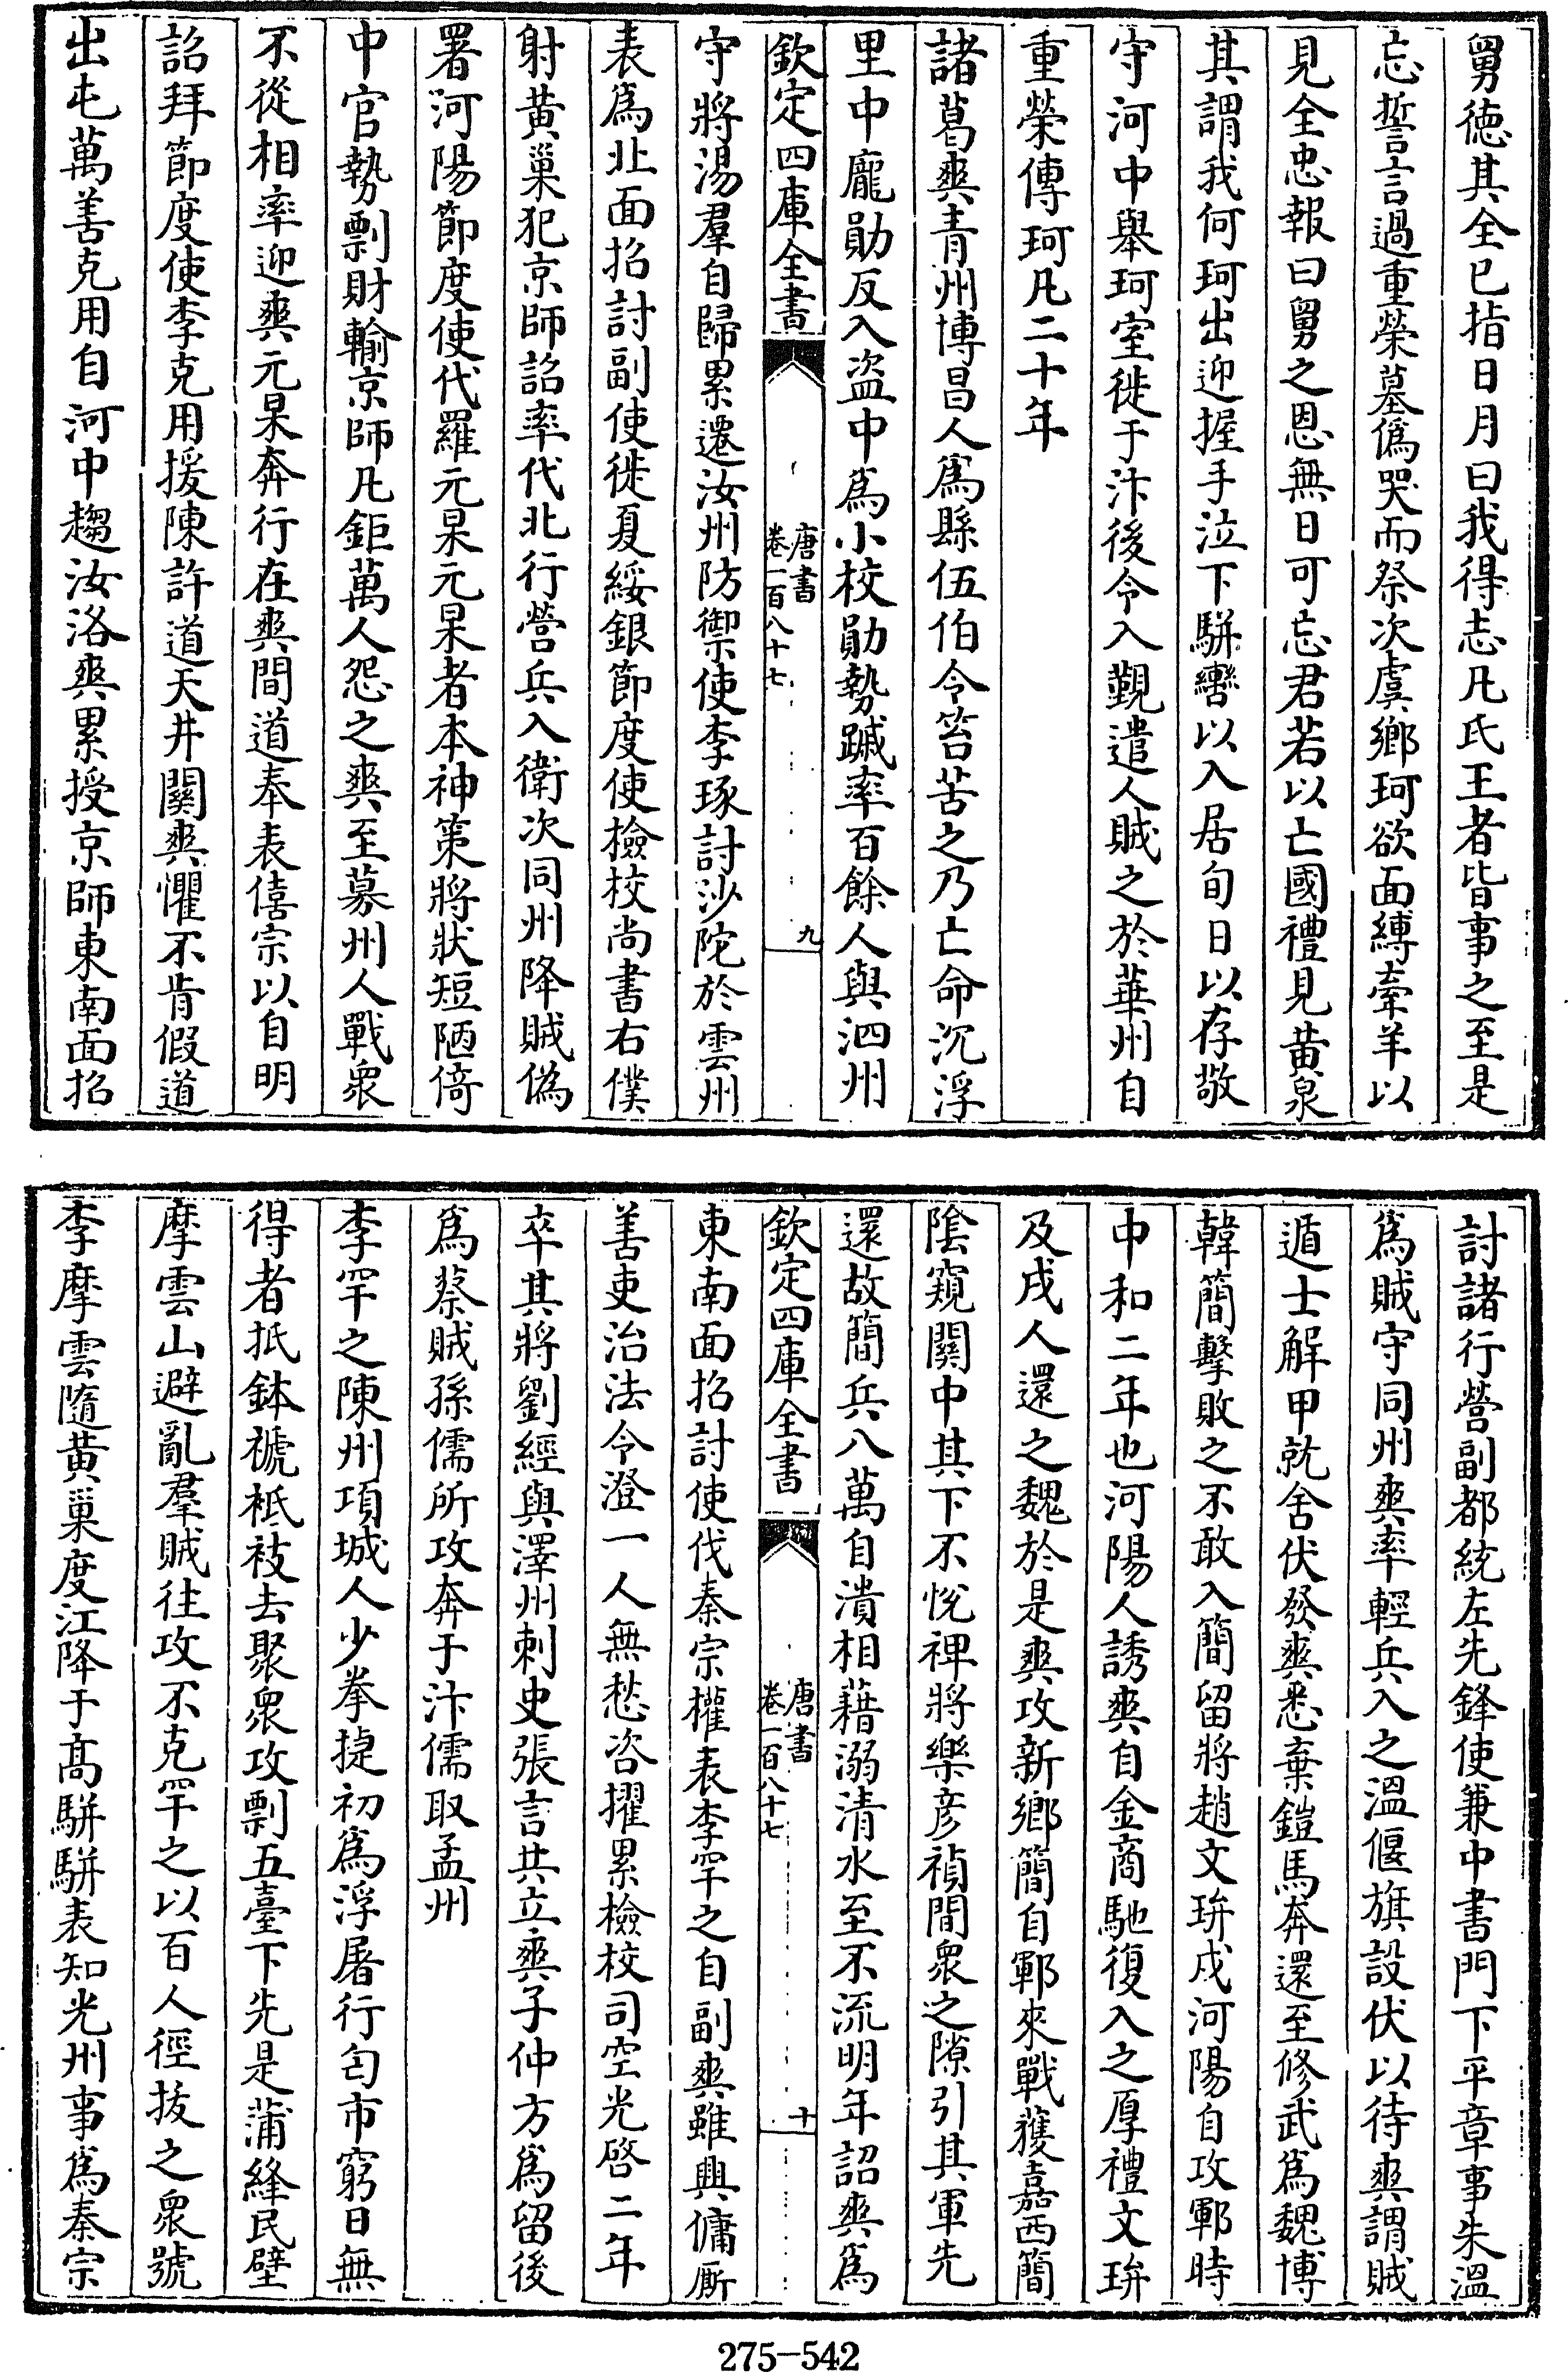 舅德其全已指日月曰我得志凡氏王者皆事之至是
忘誓言過重榮墓偽哭而祭次虞鄉珂欲面縛牽羊以
見全忠報曰舅之恩無日可忘君若以亡國禮見黃泉
其謂我何珂出迎握手泣下騈轡以入居旬日以存敬
守河中舉珂室徙于汴後令入覲遣人賊之於華州自
重榮傳珂凡二十年
諸葛爽青州博昌人為縣伍伯令笞苦之乃亡命沉浮
里中龐勛反入盜中為小校勛勢蹙率百餘人與泗州
欽定四庫全書
唐書
卷一百八十七
九
守將湯羣自歸累遷汝州防禦使李琢討沙陀於雲州
表為北面招討副使徙夏綏銀節度使檢校尚書右僕
射黃巢犯京師詔率代北行營兵入衛次同州降賊偽
署河陽節度使代羅元杲元杲者本神策將狀短陋倚
中官勢剽財輸京師凡鉅萬人怨之爽至募州人戰衆
不從相率迎爽元杲奔行在爽間道奉表僖宗以自明
詔拜節度使李克用援陳許道天井關爽懼不肯假道
出屯萬善克用自河中趨汝洛爽累授京師東南面招
討諸行營副都統左先鋒使兼中書門下平章事朱溫
為賊守同州爽率輕兵入之溫偃旗設伏以待爽謂賊
遁士解甲就舍伏發爽悉棄鎧馬奔還至修武為魏博
韓簡擊敗之不敢入簡留將趙文㺹戍河陽自攻鄆時
中和二年也河陽人誘爽自金商馳復入之厚禮文㺹
及戍人還之魏於是爽攻新鄉簡自鄆來戰獲嘉西簡
陰窺關中其下不悅裨將樂彥禎間衆之隙引其軍先
還故簡兵八萬自潰相藉溺清水至不流明年詔爽為
欽定四庫全書
唐書
卷一百八十七
十
東南面招討使伐秦宗權表李罕之自副爽雖興傭厮
善吏治法令澄一人無愁咨擢累檢校司空光啓二年
卒其將劉經與澤州刺史張言共立爽子仲方為留後
為蔡賊孫儒所攻奔于汴儒取孟州
李罕之陳州項城人少拳捷初為浮屠行匄市窮日無
得者抵鉢褫衹衼去聚衆攻剽五臺下先是蒲絳民壁
摩雲山避亂羣賊往攻不克罕之以百人徑拔之衆號
李摩雲隨黃巢度江降于高駢駢表知光州事為秦宗
275-542